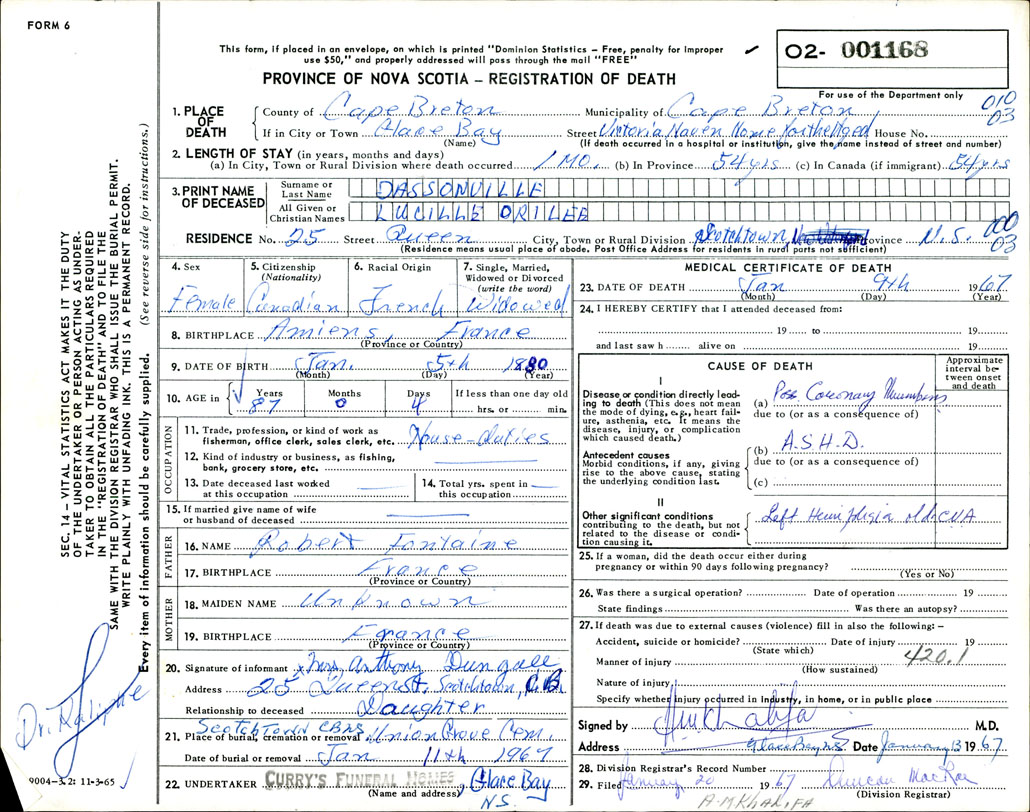 FORM 6
This form, if placed in an envelope, on which is printed "Dominion Statistics – Free, penalty for improper
use $50," and properly addressed will pass through the mail "FREE"
✓ O2- 001168
PROVINCE OF NOVA SCOTIA – REGISTRATION OF DEATH
For use of the Department only
010
03
1. PLACE OF DEATH
County of Cape Breton Municipality of Cape Breton
If in City or Town Glace Bay Street Victoria Haven Home for the Aged House No.
(Name) (If death occurred in a hospital or institution, give the name instead of street and number)
2. LENGTH OF STAY (in years, months and days)
(a) In City, Town or Rural Division where death occurred 1 MO. (b) In Province 54 yrs (c) In Canada (if immigrant) 54 yrs
3. PRINT NAME OF DECEASED
Surname or Last Name DASSONVILLE
All Given or Christian Names LUCILLE ORILEE
RESIDENCE No. 25 Street Queen City, Town or Rural Division Scotchtown, Province N.S.
(Residence means usual place of abode. Post Office Address for residents in rural parts not sufficient)
00
03
4. Sex
Female
5. Citizenship
(Nationality)
Canadian
6. Racial Origin
French
7. Single, Married,
Widowed or Divorced
(write the word)
Widowed
8. BIRTHPLACE Amiens, France
(Province or Country)
9. DATE OF BIRTH Jan. 5th 1880
(Month) (Day) (Year)
10. AGE in
Years Months Days If less than one day old
87 0 4 hrs. or min.
OCCUPATION
11. Trade, profession, or kind of work as
fisherman, office clerk, sales clerk, etc. House-duties
12. Kind of industry or business, as fishing,
bank, grocery store, etc.
13. Date deceased last worked
at this occupation
14. Total yrs. spent in
this occupation
15. If married give name of wife
or husband of deceased
FATHER
16. NAME Robert Fontaine
17. BIRTHPLACE France
(Province or Country)
MOTHER
18. MAIDEN NAME Unknown
19. BIRTHPLACE France
(Province or Country)
20. Signature of informant x Mrs Anthony
Address 25 Queen St, Scotchtown, C.B.
Relationship to deceased Daughter
21. Place of burial, cremation or removal Scotchtown CBNS Union Grove Cem.
Date of burial or removal Jan 11th 1967
22. UNDERTAKER CURRY'S FUNERAL HOMES, Glace Bay
(Name and address) N.S.
MEDICAL CERTIFICATE OF DEATH
23. DATE OF DEATH Jan 9th 1967
(Month) (Day) (Year)
24. I HEREBY CERTIFY that I attended deceased from:
19 to 19
and last saw h alive on 19
CAUSE OF DEATH
Approximate
interval be-
tween onset
and death
I
Disease or condition directly lead-
ing to death (This does not mean
the mode of dying, e.g., heart fail-
ure, asthenia, etc. It means the
disease, injury, or complication
which caused death.)
(a) Poss Coronary
due to (or as a consequence of)
Antecedent causes
Morbid conditions, if any, giving
rise to the above cause, stating
the underlying condition last.
(b) A.S.H.D.
due to (or as a consequence of)
(c)
II
Other significant conditions
contributing to the death, but not
related to the disease or condi-
tion causing it.
Left Hemiplegia old CVA
25. If a woman, did the death occur either during
pregnancy or within 90 days following pregnancy?
(Yes or No)
26. Was there a surgical operation? Date of operation 19
State findings Was there an autopsy?
27. If death was due to external causes (violence) fill in also the following: –
Accident, suicide or homicide? Date of injury 19
(State which)
Manner of injury 420.1
(How sustained)
Nature of injury
Specify whether injury occurred in Industry, in home, or in public place
Signed by M.D.
Address Glace Bay, NS Date January 13 1967
28. Division Registrar's Record Number
29. Filed January 20 1967 Duncan MacRae
(Division Registrar)
SEC. 14 – VITAL STATISTICS ACT MAKES IT THE DUTY
OF THE UNDERTAKER OR PERSON ACTING AS UNDER-
TAKER TO OBTAIN ALL THE PARTICULARS REQUIRED
IN THE "REGISTRATION OF DEATH" AND TO FILE THE
SAME WITH THE DIVISION REGISTRAR WHO SHALL ISSUE THE BURIAL PERMIT.
WRITE PLAINLY WITH UNFADING INK. THIS IS A PERMANENT RECORD.
Every item of information should be carefully supplied. (See reverse side for instructions.)
9004-3.2: 11-3-65